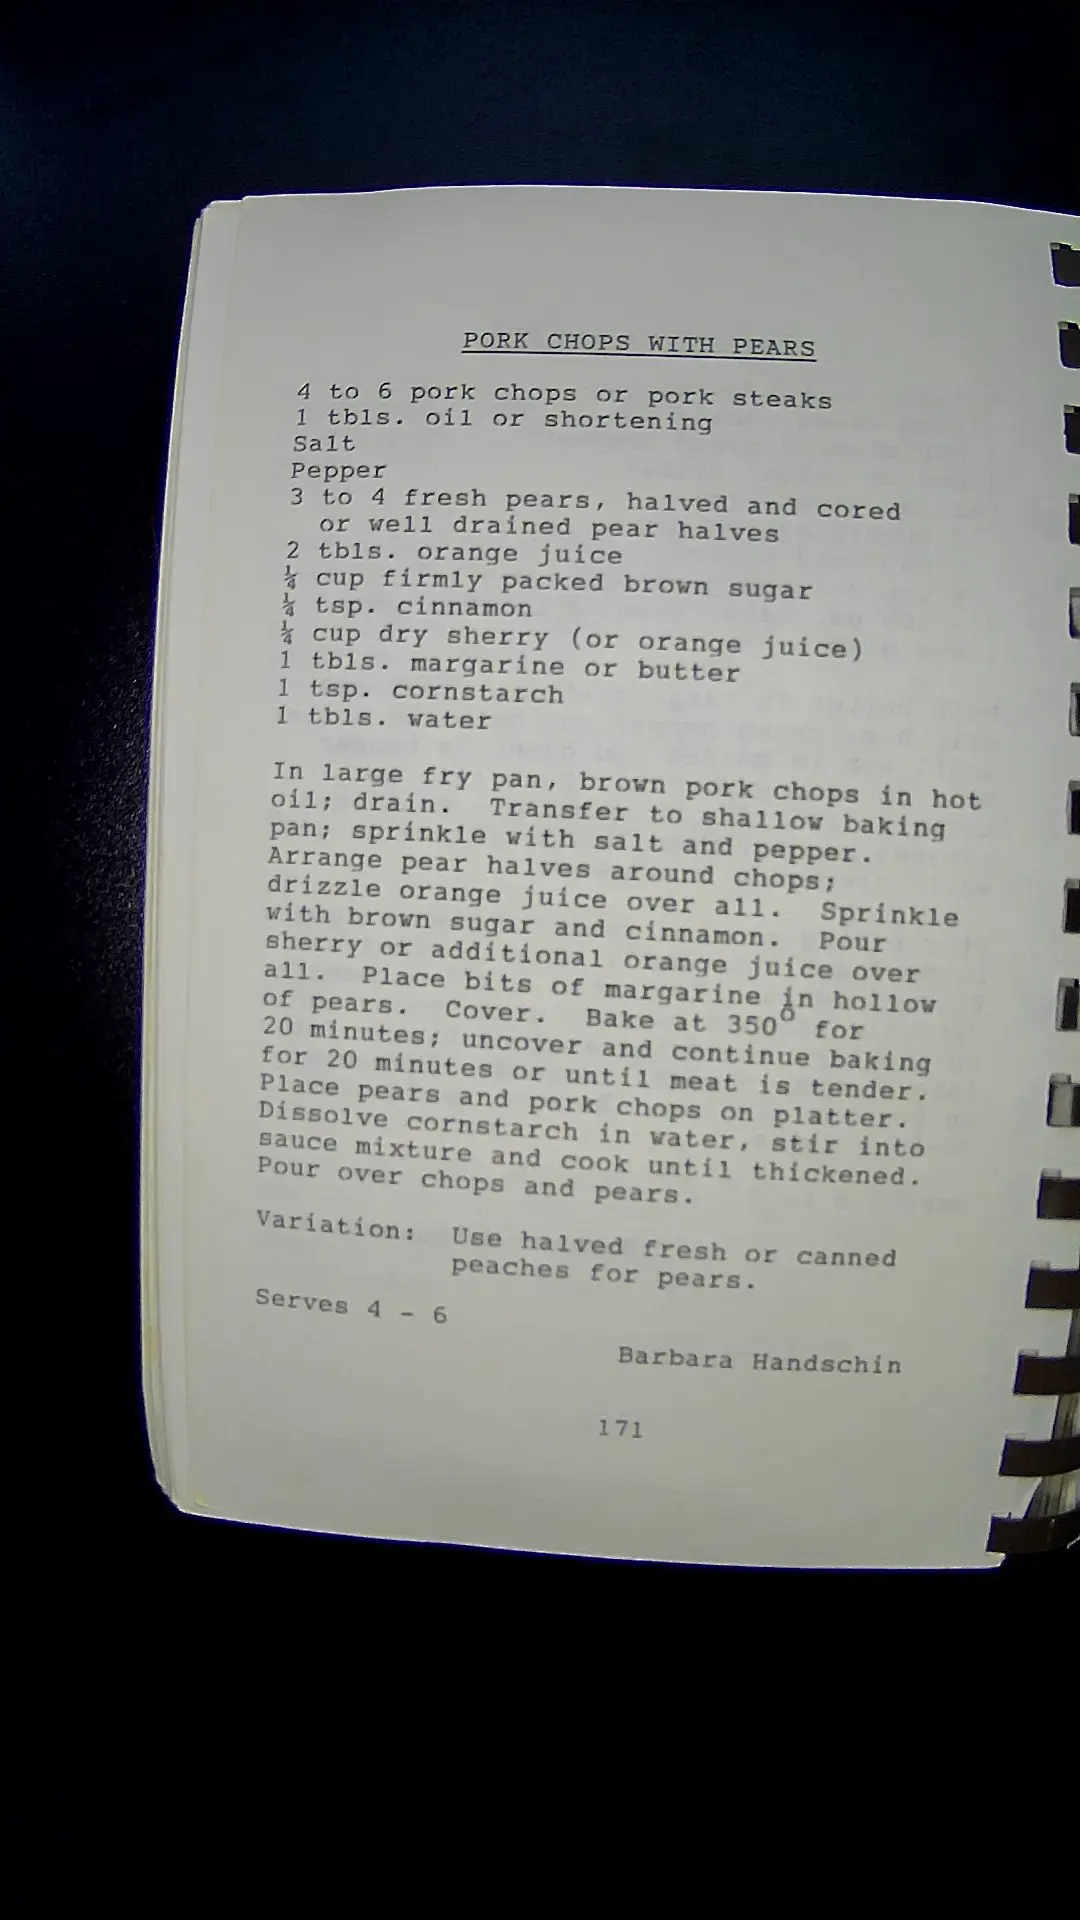 PORK CHOPS WITH PEARS
4 to 6 pork chops or pork steaks
1 tbls. oil or shortening
Salt
Pepper
3 to 4 fresh pears, halved and cored
or well drained pear halves
2 tbls. orange juice
¼ cup firmly packed brown sugar
¼ tsp. cinnamon
¼ cup dry sherry (or orange juice)
1 tbls. margarine or butter
1 tsp. cornstarch
1 tbls. water
In large fry pan, brown pork chops in hot
oil; drain. Transfer to shallow baking
pan; sprinkle with salt and pepper.
Arrange pear halves around chops;
drizzle orange juice over all. Sprinkle
with brown sugar and cinnamon. Pour
sherry or additional orange juice over
all. Place bits of margarine in hollow
of pears. Cover. Bake at 350° for
20 minutes; uncover and continue baking
for 20 minutes or until meat is tender.
Place pears and pork chops on platter.
Dissolve cornstarch in water, stir into
sauce mixture and cook until thickened.
Pour over chops and pears.
Variation: Use halved fresh or canned
peaches for pears.
Serves 4 - 6
Barbara Handschin
171